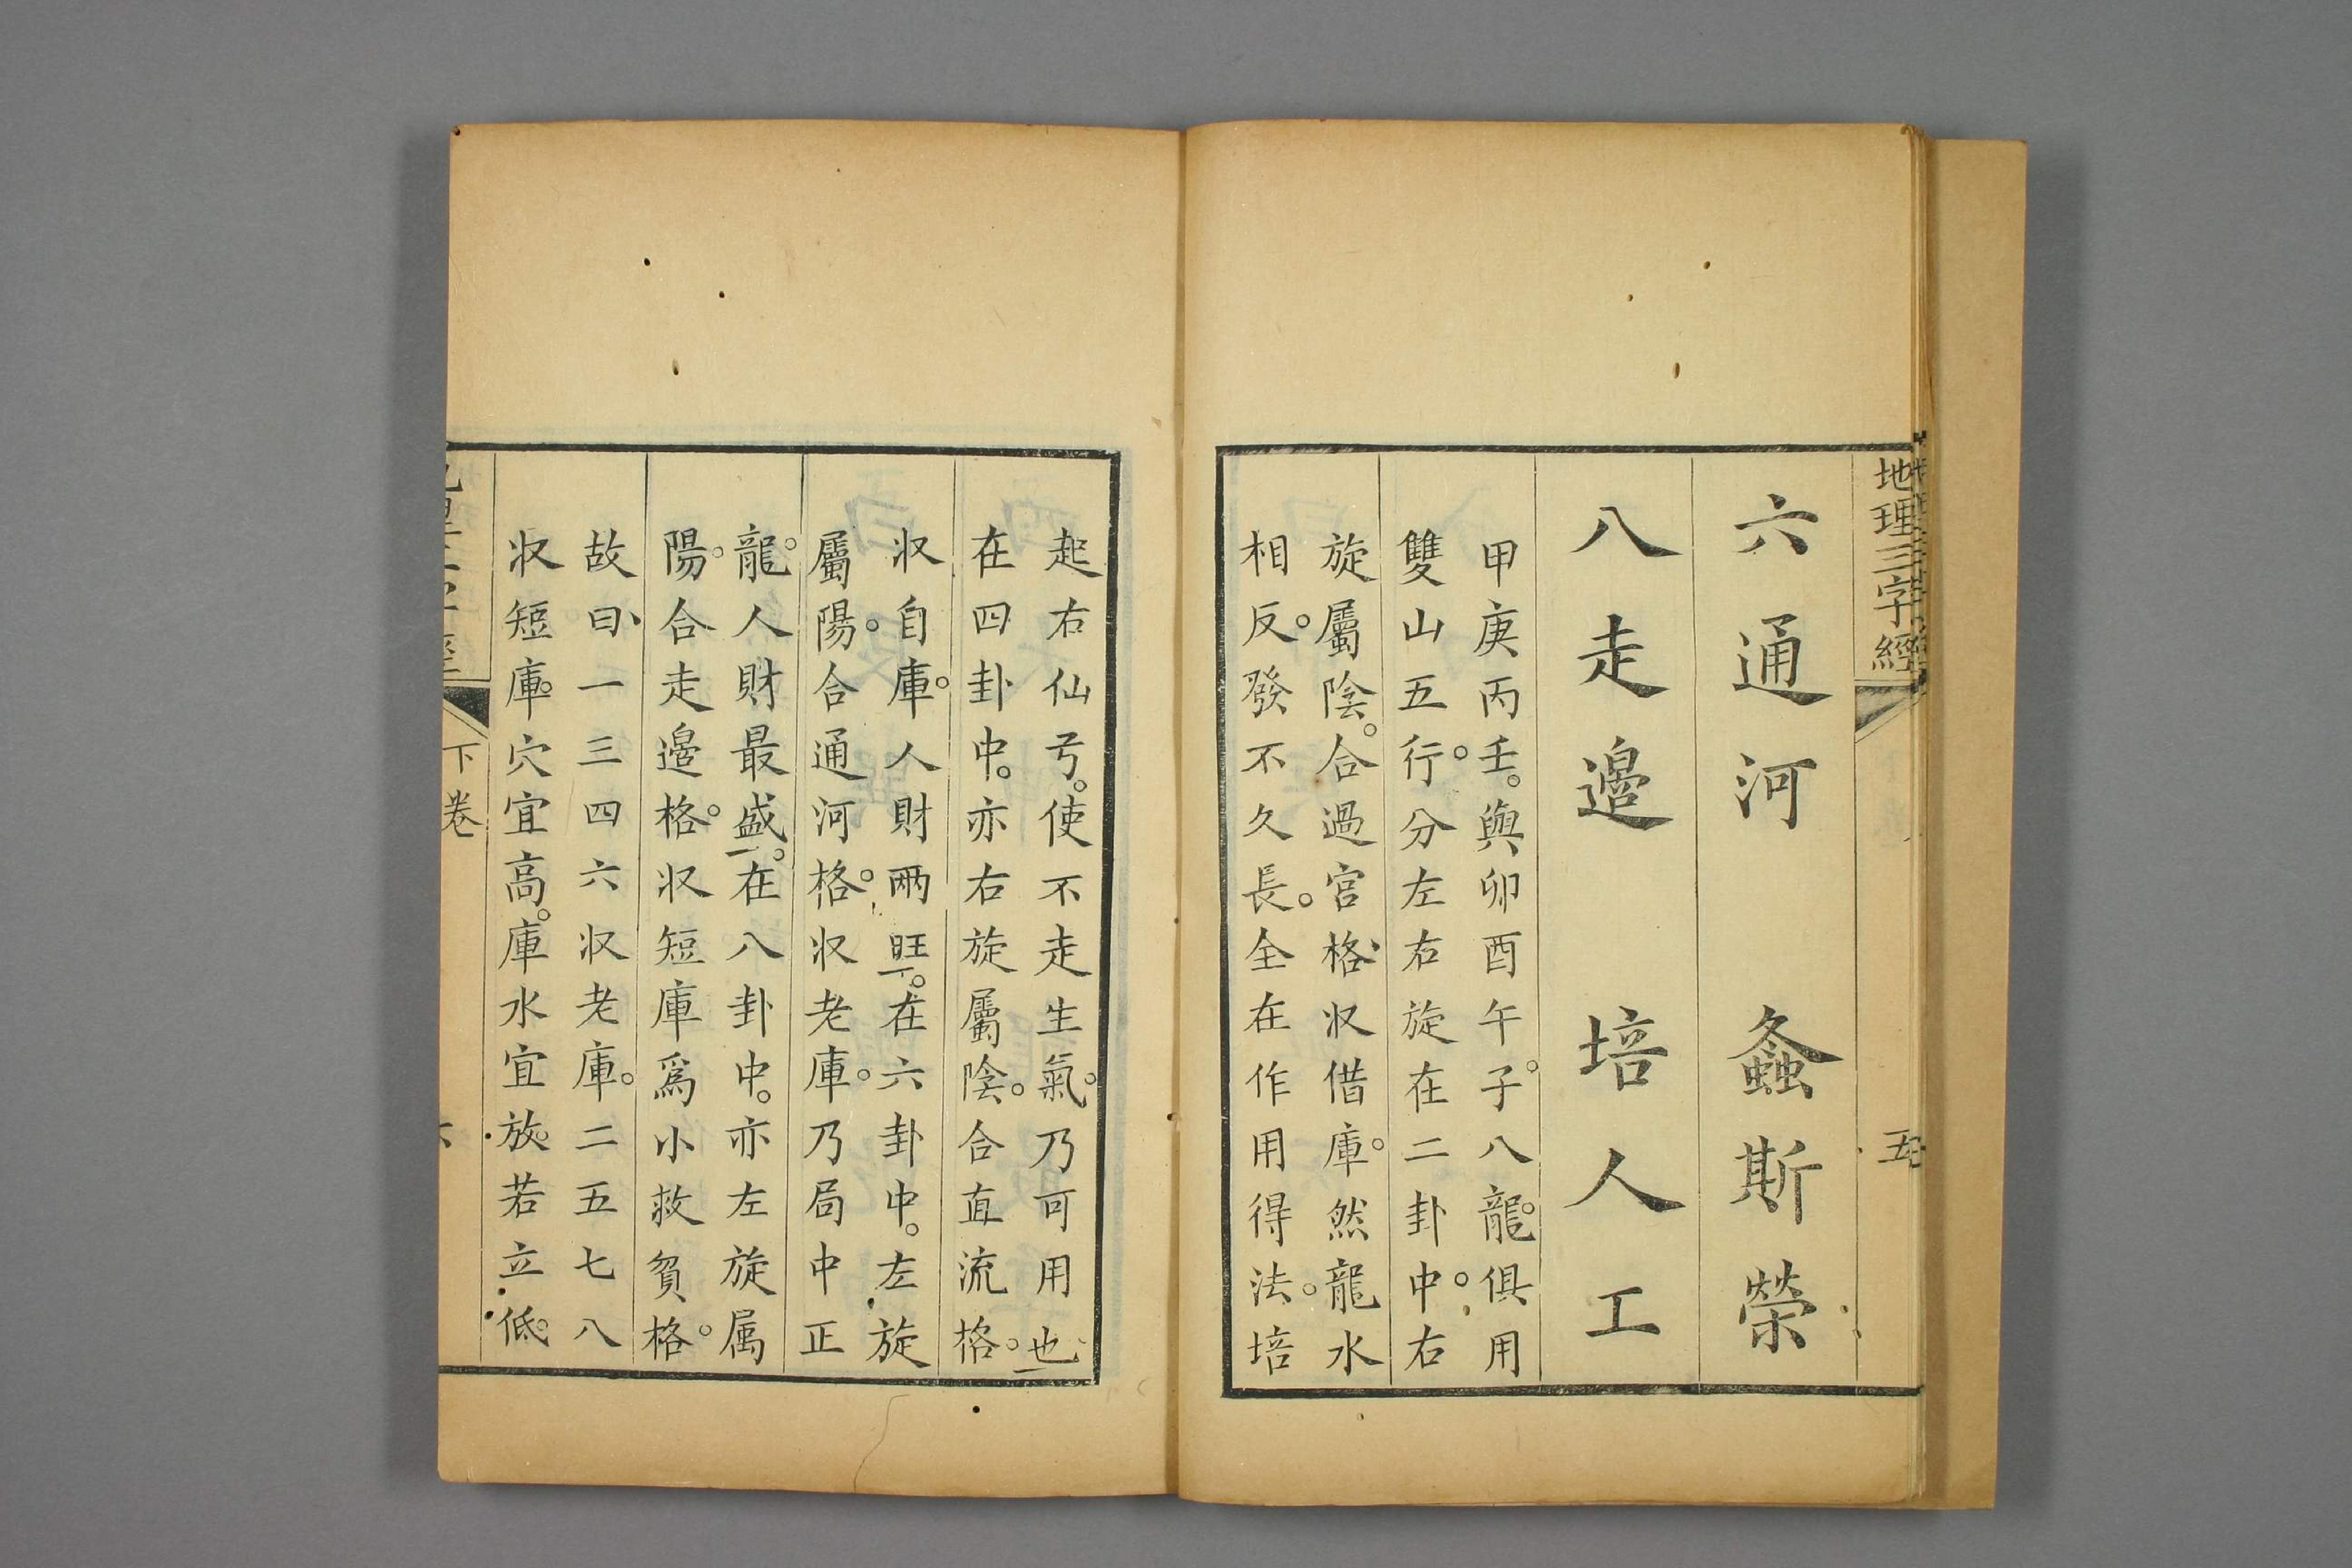 地理三字經
五
六通河　螽斯榮
八走邉　培人工
甲庚丙壬。與卯酉午。子八龍。俱用
雙山五行。分左右旋在二卦中。右
旋屬陰。合過宮格、収借庫。然龍水
相反。發不久長。全在作用得法。培
起右仙弓。使不走生氣。乃可用也
在四卦中。亦右旋屬陰。合直流格。
収自庫。人財兩旺。在六卦中。左旋
屬陽。合通河格。収老庫。乃局中正
龍。人財最盛。在八卦中。亦左旋属
陽。合走邉格。収短庫爲小救貧格。
故曰、一三四六収老庫。二五七八
収短庫。穴宜高。庫水宜放。若立低。
下卷